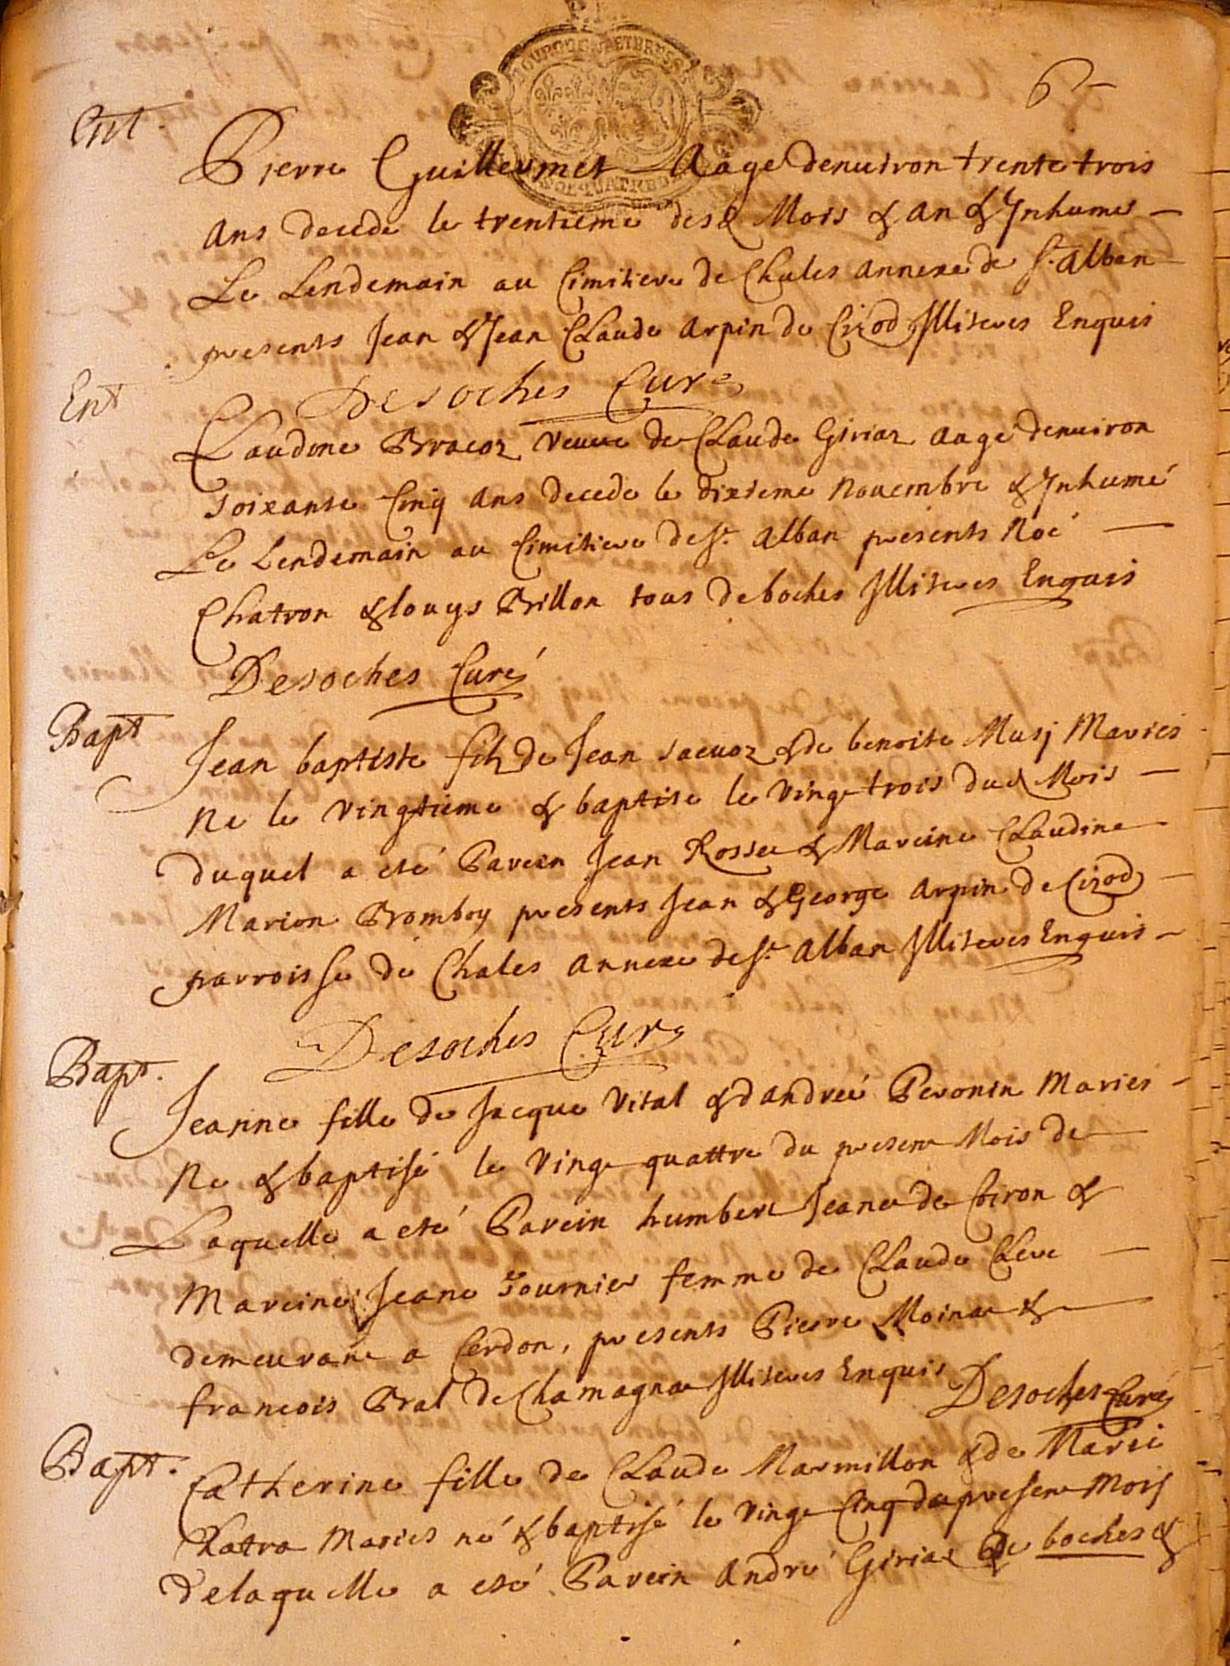 6
Ent.
Pierre Guilleumet Aage denuiron trente trois
Ans decede le trentieme desd Mois & an & Inhumé
Le Lendemain au Cimitiere de Chales annexe de St. Alban
presents Jean & Jean Claude Arpin de Cizod Illiteres Enquis
Desoches Curé
Ent
Claudine Bracoz veuve de Claude Giriaz aage denuiron
soixante Cinq ans decede le dixieme Nouembre & Inhumé
Le Lendemain au Cimitiere de St. Alban presents Noé
Chatron & louys Brillon tous de boches Illiteres Enquis
Desoches Curé
Bapt
Jean baptiste fils de Jean Jacuoz & de benoite Musj Mariés
Ne le vingtieme & baptise le vingt trois dud Mois
duquel a eté Parein Jean Rosset & Mareine Claudine
Marion Bromboy presents Jean & George Arpin de Cizod
parroisse de Chales annexe de St. Alban Illiteres Enquis
Desoches Curé
Bapt.
Jeanne fille de Jacque Vital & d'andreé Peronin Mariés
Ne & baptisé le vingt quattre du present Mois de
Laquelle a eté Parein humbert Jeanet de Coiron &
Mareine Jeane Fournier femme de Claude Clerc
demeurant a Cerdon, presents Pierre Moinat &
francois Bral de Chamagnat Illiteres Enquis Desoches Curé
Bapt.
Catherine fille de Claude Marmillon & de Marie
Mariés né & baptisé le vingt Cinq du present Mois
De laquelle a eté Parein André Giriat de boches &